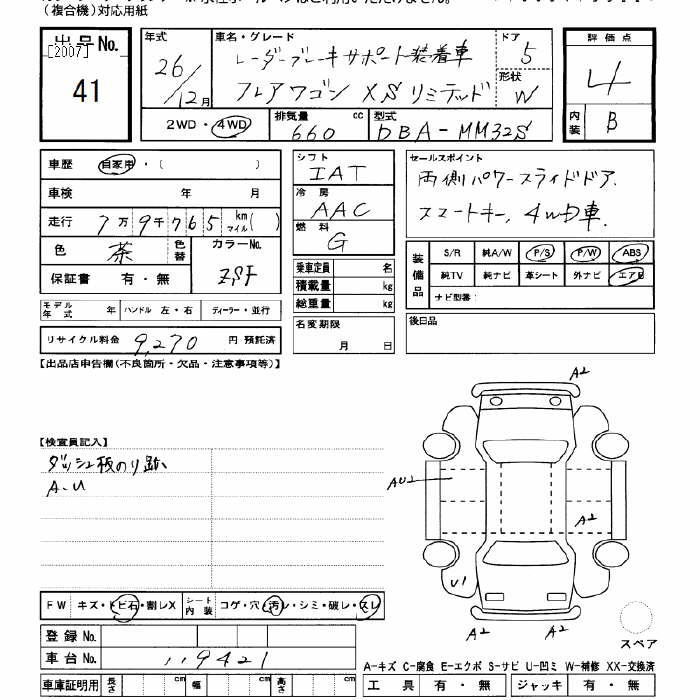 (複合機)対応用紙
出品No.
[2007]
41
年式
26/12月
車名・グレード
レーダーブレーキサポート装着車
フレアワゴン XSリミテッド
ドア
5
形状
W
評価点
4
内装
B
2WD・4WD
排気量 cc
660
型式
DBA-MM32S
車歴 自家用・( )
車検 年 月
走行 7万9千765 km マイル( )
色 茶 色替
カラーNo.
ZSF
保証書 有・無
シフト
IAT
冷房
AAC
燃料
G
乗車定員 名
積載量 kg
総重量 kg
セールスポイント
両側パワースライドドア.
スマートキー, 4WD車.
装備品
S/R 純A/W P/S P/W ABS
純TV 純ナビ 革シート 外ナビ エアB
ナビ型番:
モデル年式 年 ハンドル 左・右 ディーラー・並行
リサイクル料金 9,270 円 預託済
名変期限
月 日
後日品
【出品店申告欄(不良箇所・欠品・注意事項等)】
A2
【検査員記入】
ダッシュ板のり跡
A-U
AU2
A2
U1
A2
A2
スペア
FW キズ・トビ石・割レX シート内装 コゲ・穴・汚レ・シミ・破レ・スレ
登録No.
車台No. 119421
A-キズ C-腐食 E-エクボ S-サビ U-凹ミ W-補修 XX-交換済
車庫証明用 長さ cm 幅 cm 高さ cm
工具 有・無 ジャッキ 有・無